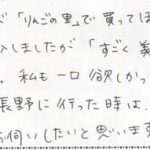 「りんごの里」で買ってほ
しましたが「すごく美
。私も一口欲しかっ
長野に行った時は、
お伺いしたいと思います